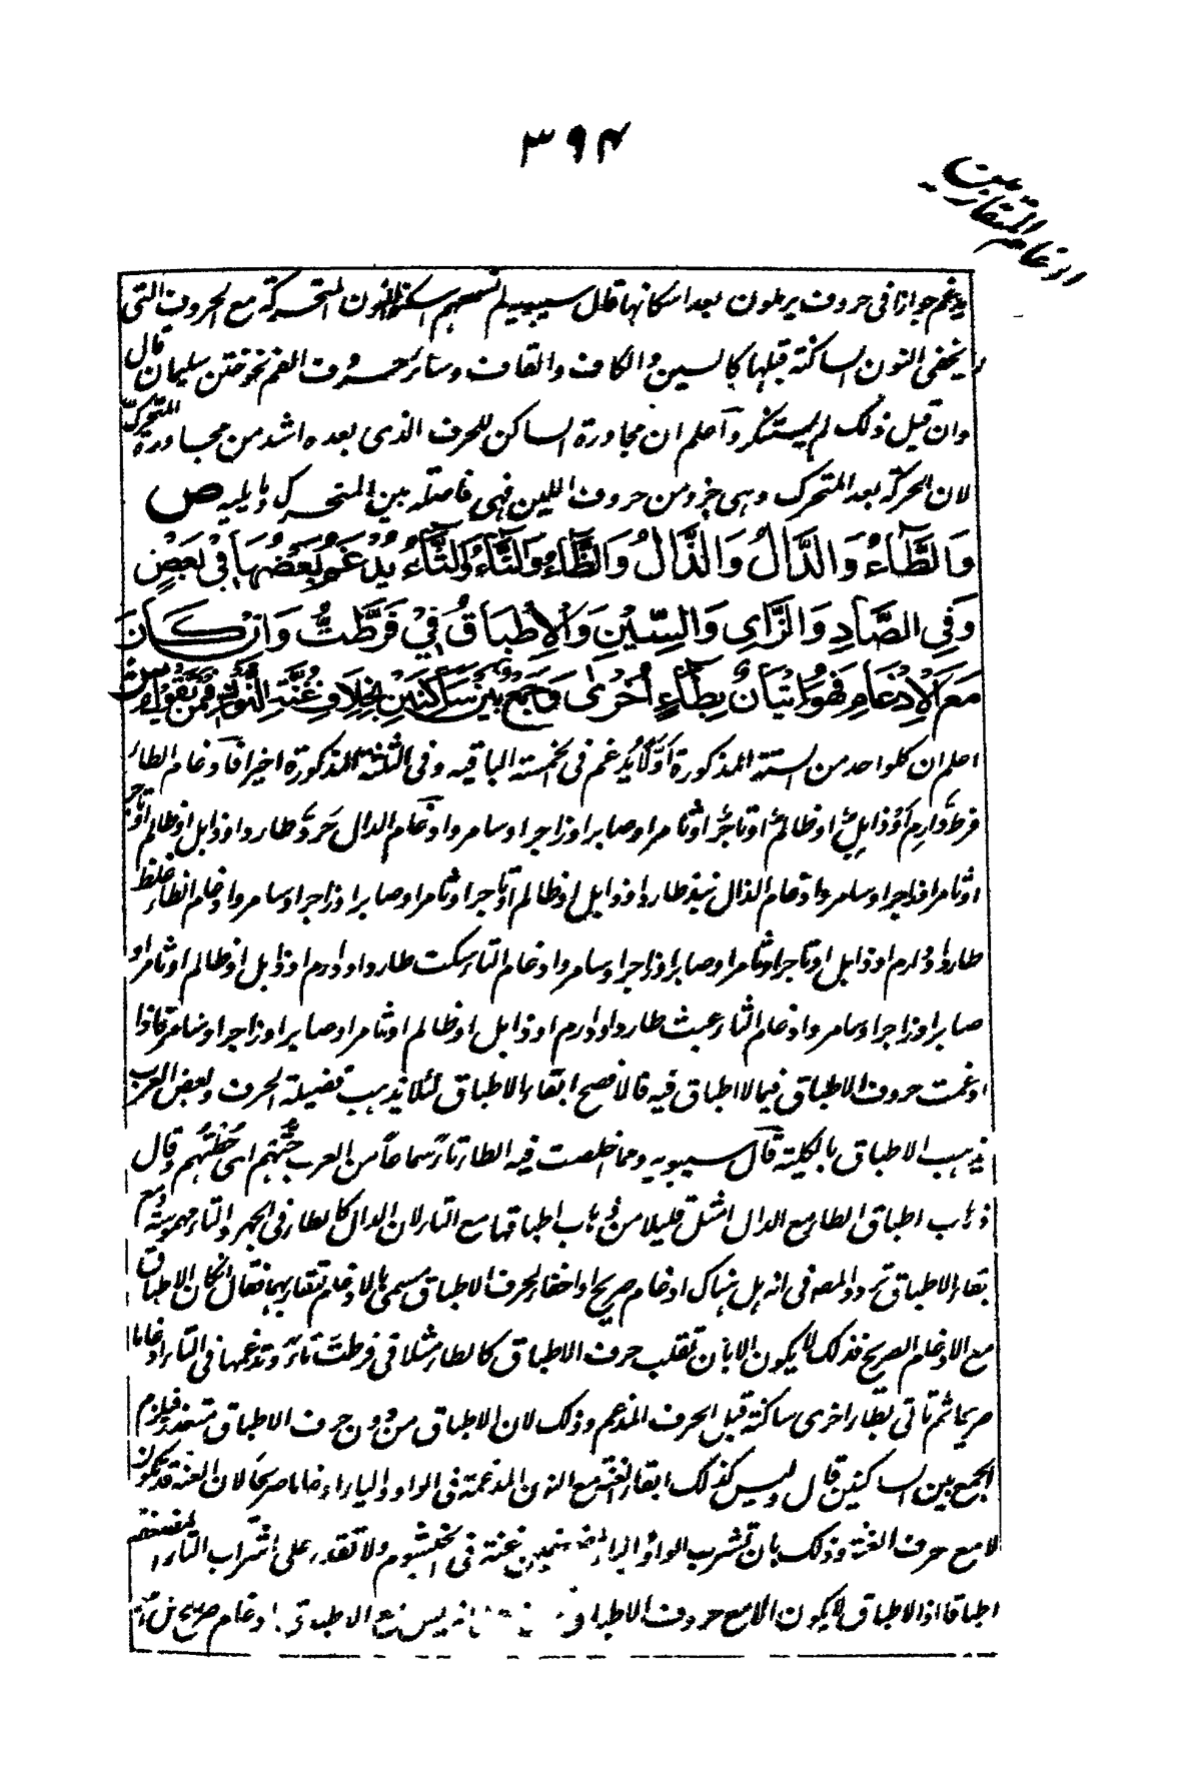 ٣٩٤
ادغام المتقاربين
يدغم جوازا فى حروف يرملون بعد اسكانها قال سيبويه لم نسمعهم اسكنوا النون المتحركة مع الحروف التى
يخفى النون الساكنة قبلها كالسين والكاف والقاف وسائر حروف الفم نحو ختن سليمان قال
وان قيل ذلك لم يستنكر واعلم ان مجاورة الساكن للحرف الذى بعده اشد من مجاورة المتحرك
لان الحركة بعد المتحرك وهى جزء من حروف اللين فهى فاصلة بين المتحرك وما يليه ص
وَالطَّاءُ وَالدَّالُ وَالذَّالُ وَالظَّاءُ وَالتَّاءُ وَالثَّاءُ يُدْغَمُ بَعْضُهَا فِىْ بَعْضٍ
وَفِى الصَّادِ وَالزَّاىِ وَالسِّيْنِ وَالْاِطْبَاقُ فِىْ فَرَّطْتُّ وَاِنْ كَانَ
مَعَ الْاِدْغَامِ فَهُوَ اِتْيَانٌ بِطَاءٍ اُخْرٰى وَجَمْعٌ بَيْنَ سَاكِنَيْنِ بِخِلَافِ غُنَّةِ النُّوْنِ فِىْ مَنْ يَّقُوْلُ ش
اعلم ان كلواحد من الستة المذكورة اولا يدغم فى الخمسة الباقيه وفى الثلثة المذكورة اخيرا فادغام الطاء
فرط دارم او ذابل او ظالم او تاجر او ثامر او صابر او زاجر او سامر وادغام الدال جرد طارد او ذابل او ظالم او تاجر
او ثامر او زاجر او سامر وادغام الذال نبذ طارد او ذابل او ظالم او تاجر او ثامر او صابر او زاجر او سامر وادغام الظاء غلظ
طارد او دارم او ذابل او تاجر او ثامر او صابر او زاجر او سامر وادغام التاء سكت طارد او دارم او ذابل او ظالم او ثامر او
صابر او زاجر او سامر وادغام الثاء عبث طارد او دارم او ذابل او ظالم او ثامر او صابر او زاجر او سامر فاذا
ادغمت حروف الاطباق فيما لا اطباق فيه فالافصح ابقاء الاطباق لئلا يذهب فضيلة الحرف وبعض العرب
يذهب الاطباق بالكلية قال سيبويه ومما اخلصت فيه الطاء تاء سماعا من العرب حُتُّهم اى حُطْتُهم وقال
ذهاب اطباق الطاء مع الدال امثل قليلا من ذهاب اطباقها مع التاء لان الدال كالطاء فى الجهر والتاء مهموسة ومع
بقاء الاطباق تردد المصه فى انه هل هناك ادغام صريح او اخفاء لحرف الاطباق مسمى بالادغام لتقاربهما فقال ان كان الاطباق
مع الادغام الصريح فذلك لا يكون الا بان تقلب حرف الاطباق كالطاء مثلا فى فرطت تاء وتدغمها فى التاء ادغاما
صريحا ثم تاتى بطاء اخرى ساكنة قبل الحرف المدغم وذلك لان الاطباق من دون حرف الاطباق متعذر فيلزم
الجمع بين الساكنين قال وليس كذلك ابقاء الغنة مع النون المدغمة فى الواو والياء ادغاما صريحا لان الغنة قد تكون
لا مع حرف الغنة وذلك بان تشرب الواو والياء المضعفتين غنة فى الخيشوم ولا تقدر على اشراب التاء المضعفة
اطباقا اذ الاطباق لا يكون الا مع حروف الاطباق انه ليس مع الاطباق ادغام صريح